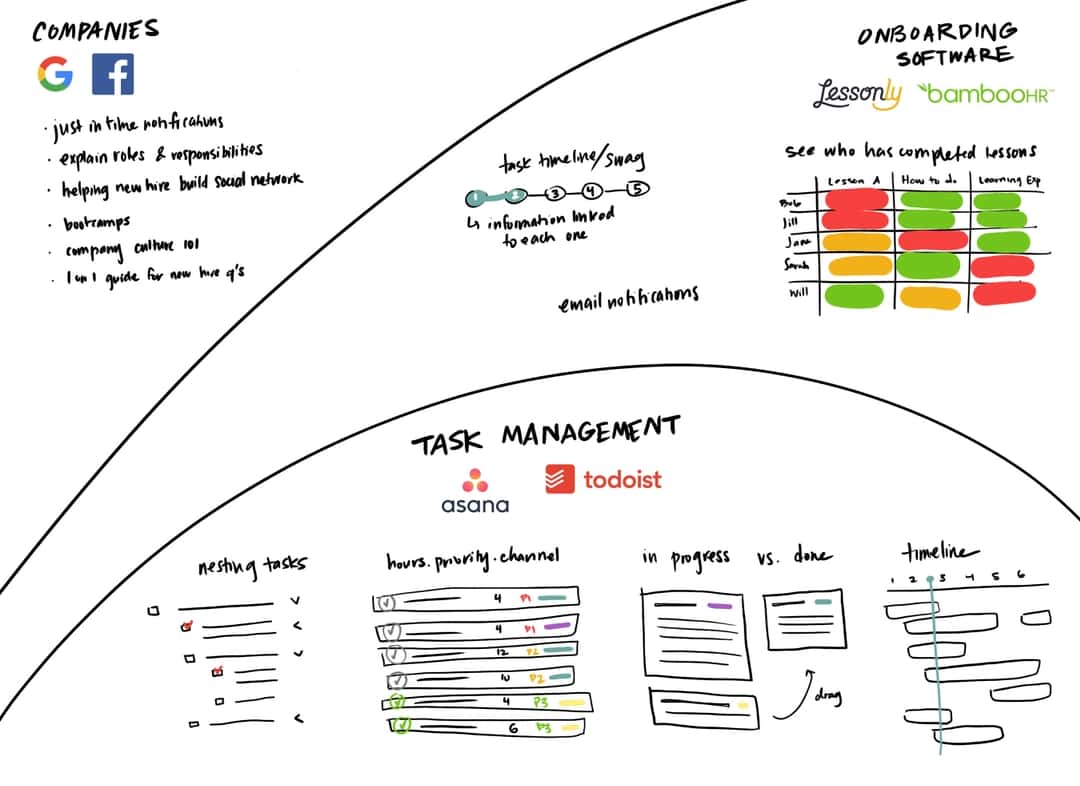 COMPANIES
G f
· just in time notifications
· explain roles & responsibilities
· helping new hire build social network
· bootcamps
· company culture 101
· 1 on 1 guide for new hire q's
ONBOARDING
SOFTWARE
Lessonly bambooHR™
task timeline/swag
1 2 3 4 5
↳ information linked
to each one
email notifications
see who has completed lessons
Lesson A How to do Learning Exp
Bob
Jill
Jane
Sarah
Will
TASK MANAGEMENT
asana
todoist
nesting tasks
hours · priority · channel
4 P1
4 P1
12 P2
10 P2
4 P3
6 P3
in progress vs. done
drag
timeline
1 2 3 4 5 6